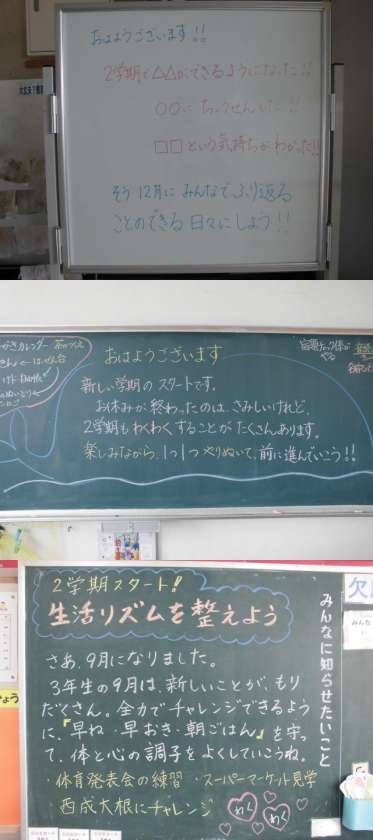 おはようございます!!
2学期で△△ができるようになった!!
○○にちょうせんした!!
□□という気持ちがわかった!!
そう 12月に みんなで ふり返る
ことのできる 日々にしよう!!
おはようございます
新しい学期の スタートです。
お休みが 終わったのは、さみしいけれど、
2学期も わくわく することが たくさんあります。
楽しみながら、1つ1つ やりぬいて、前に進んでいこう!!
2学期スタート!
生活リズムを整えよう
みんなに知らせたいこと
さあ、9月になりました。
3年生の9月は、新しいことが、もり
だくさん。全力でチャレンジできるよう
に、『早ね・早おき・朝ごはん』を守っ
て、体と心の調子をよくしていこうね。
・体育発表会の練習 ・スーパーマーケット見学
・西成大根にチャレンジ
わく
わく